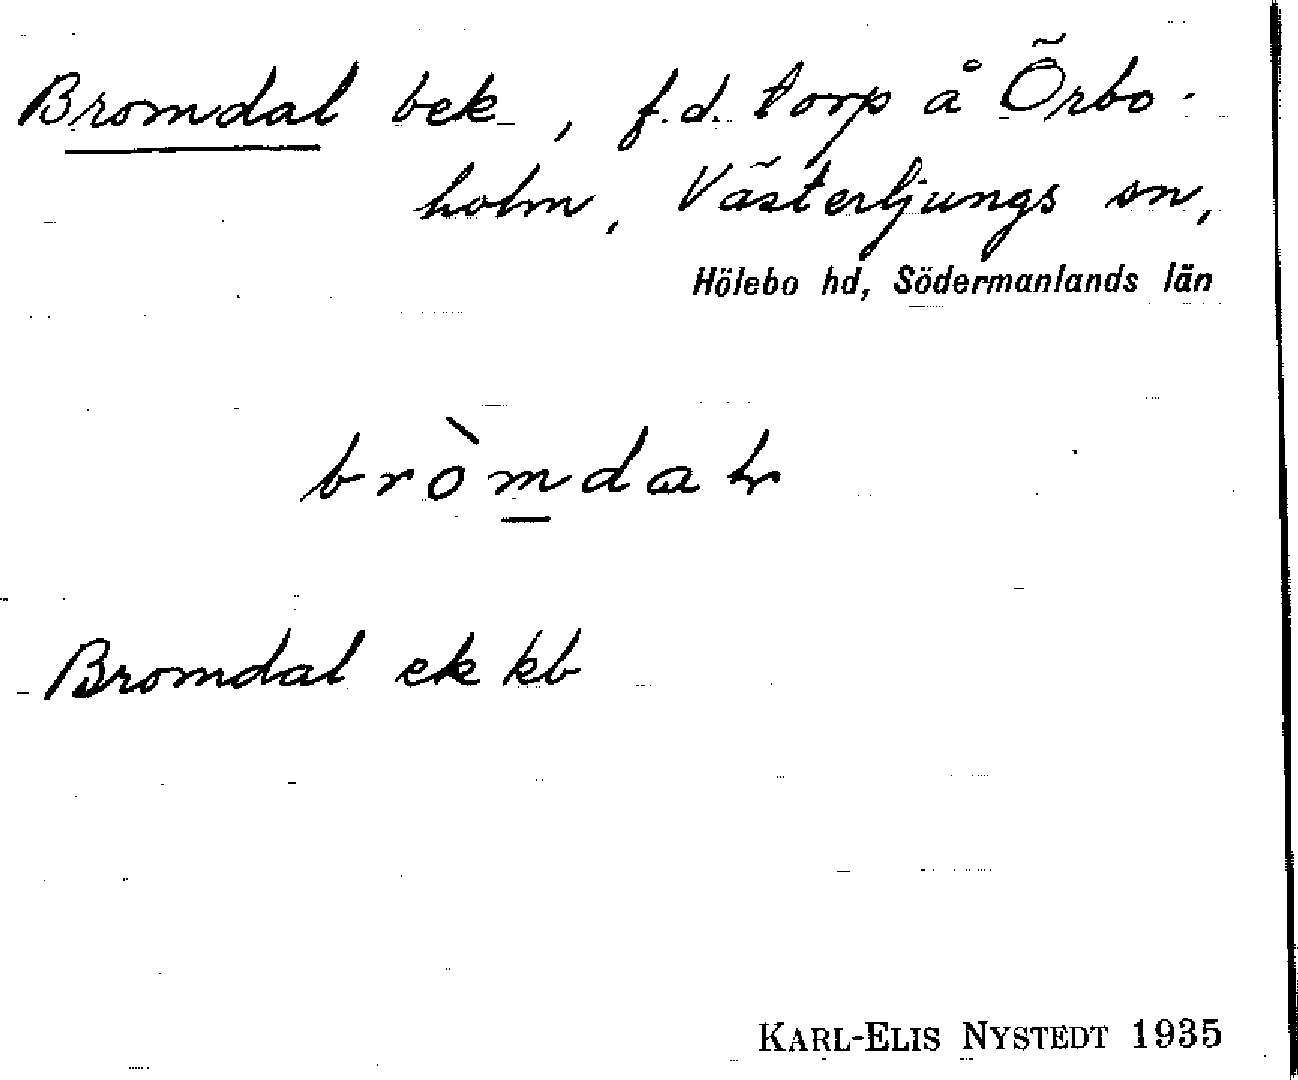 Bromdal bek, f.d. torp å Örbo-
holm, Västerljungs sn,
Hölebo hd, Södermanlands län
bròm̲da
Bromdal ek kb
KARL-ELIS NYSTEDT 1935